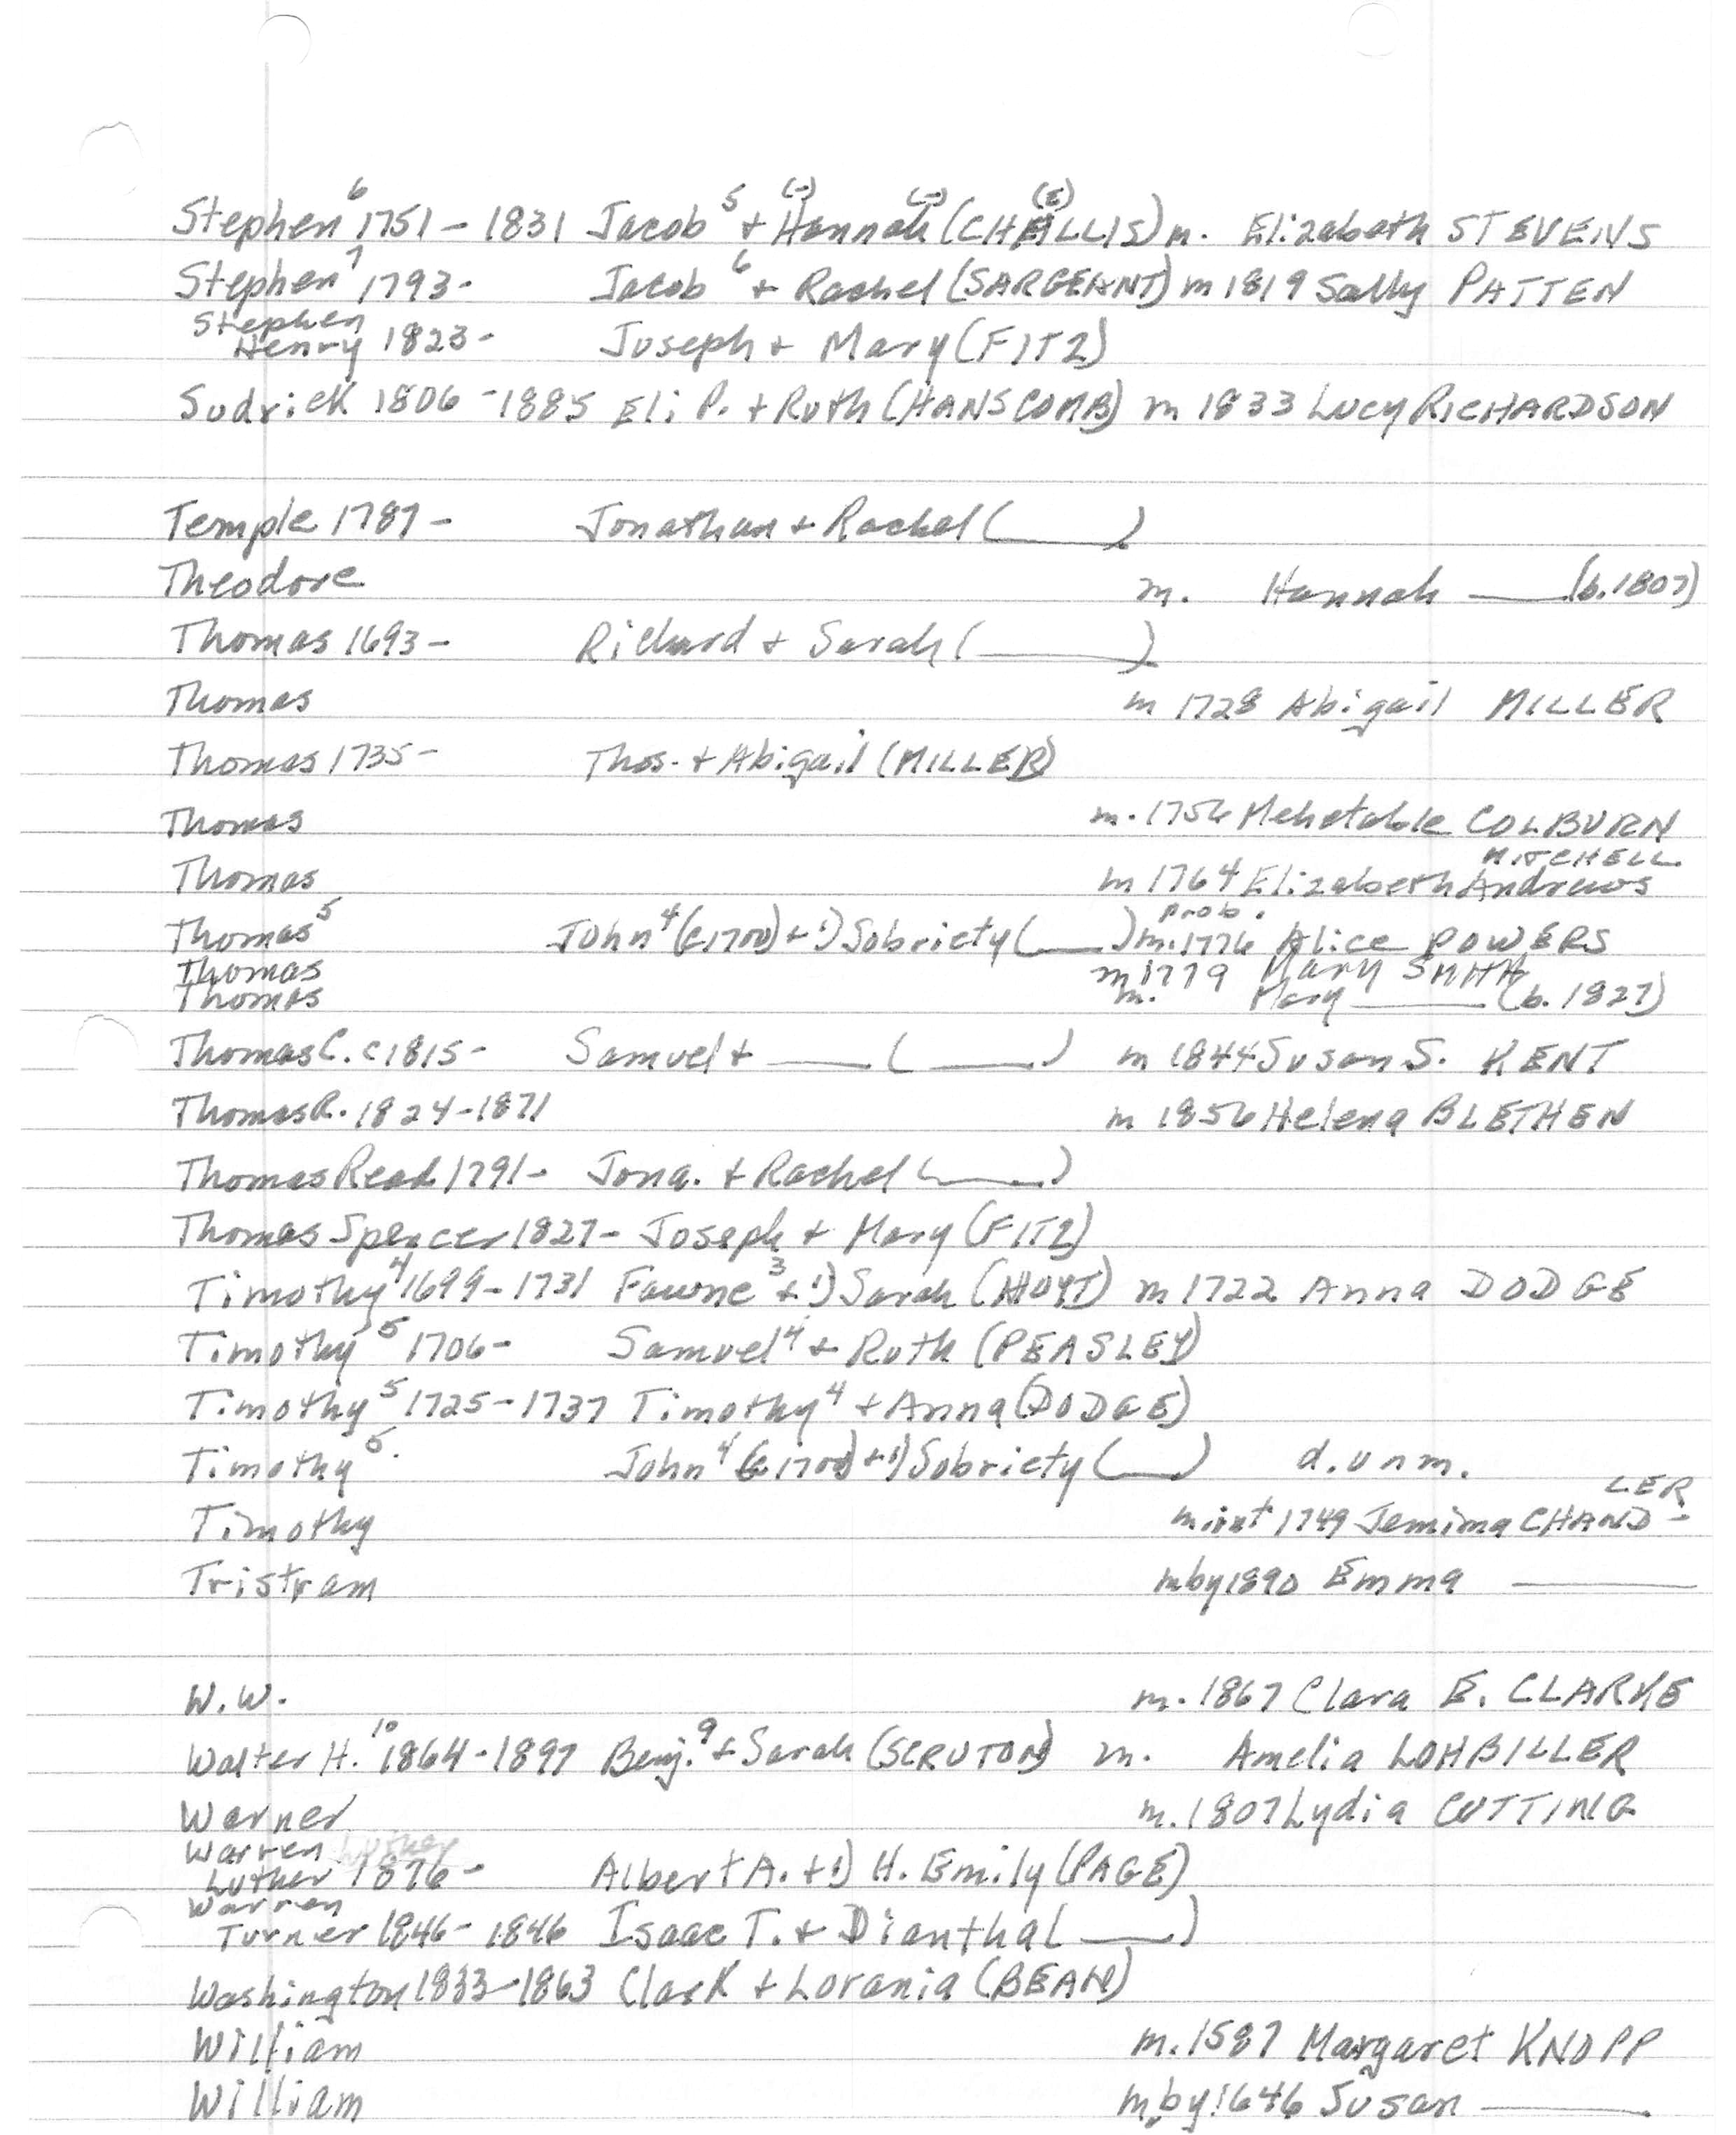 Stephen⁶ 1751 – 1831 Jacob⁵ + Hannah (CHELLIS) m. Elizabeth STEVENS
Stephen⁷ 1793 - Jacob⁶ + Rachel (SARGEANT) m 1819 Sally PATTEN
Stephen
Henry 1823 - Joseph + Mary (FITZ)
Sudrick 1806 - 1885 Eli P. + Ruth (HANSCOMB) m 1833 Lucy RICHARDSON
Temple 1787 - Jonathan + Rachel (____)
Theodore m. Hannah ____ (b. 1807)
Thomas 1693 - Richard + Sarah (____)
Thomas m 1728 Abigail MILLER
Thomas 1735 - Thos. + Abigail (MILLER)
Thomas m. 1756 Mehetable COLBURN
MITCHELL
Thomas m 1764 Elizabeth Andrews
Thomas⁵ John⁴ (c1700) + 1) Sobriety (____) prob. m. 1776 Alice POWERS
Thomas m 1779 Mary SMITH
Thomas m. Mary ____ (b. 1827)
Thomas C. c1815 - Samuel + ____ (____) m 1844 Susan S. KENT
Thomas R. 1824 - 1871 m 1856 Helena BLETHEN
Thomas Read 1791 - Jona. + Rachel (____)
Thomas Spencer 1827 - Joseph + Mary (FITZ)
Timothy⁴ 1699 - 1731 Fawne³ + 1) Sarah (HOYT) m 1722 Anna DODGE
Timothy⁵ 1706 - Samuel⁴ + Ruth (PEASLEY)
Timothy⁵ 1725 - 1737 Timothy⁴ + Anna (DODGE)
Timothy⁵ John⁴ (c1700) + 1) Sobriety (____) d. unm.
LER
Timothy m int 1749 Jemima CHAND-
Tristram m by 1890 Emma ____
W. W. m. 1867 Clara E. CLARKE
Walter H.¹⁰ 1864 - 1897 Benj.⁹ + Sarah (SCRUTON) m. Amelia LOHBILLER
Warner m. 1807 Lydia CUTTING
Warren
Luther 1876 - Albert A. + 1) H. Emily (PAGE)
Warren
Turner 1846 - 1846 Isaac T. + Diantha (____)
Washington 1833 - 1863 Clark + Lorania (BEAN)
William m. 1587 Margaret KNOPP
William m by 1646 Susan ____